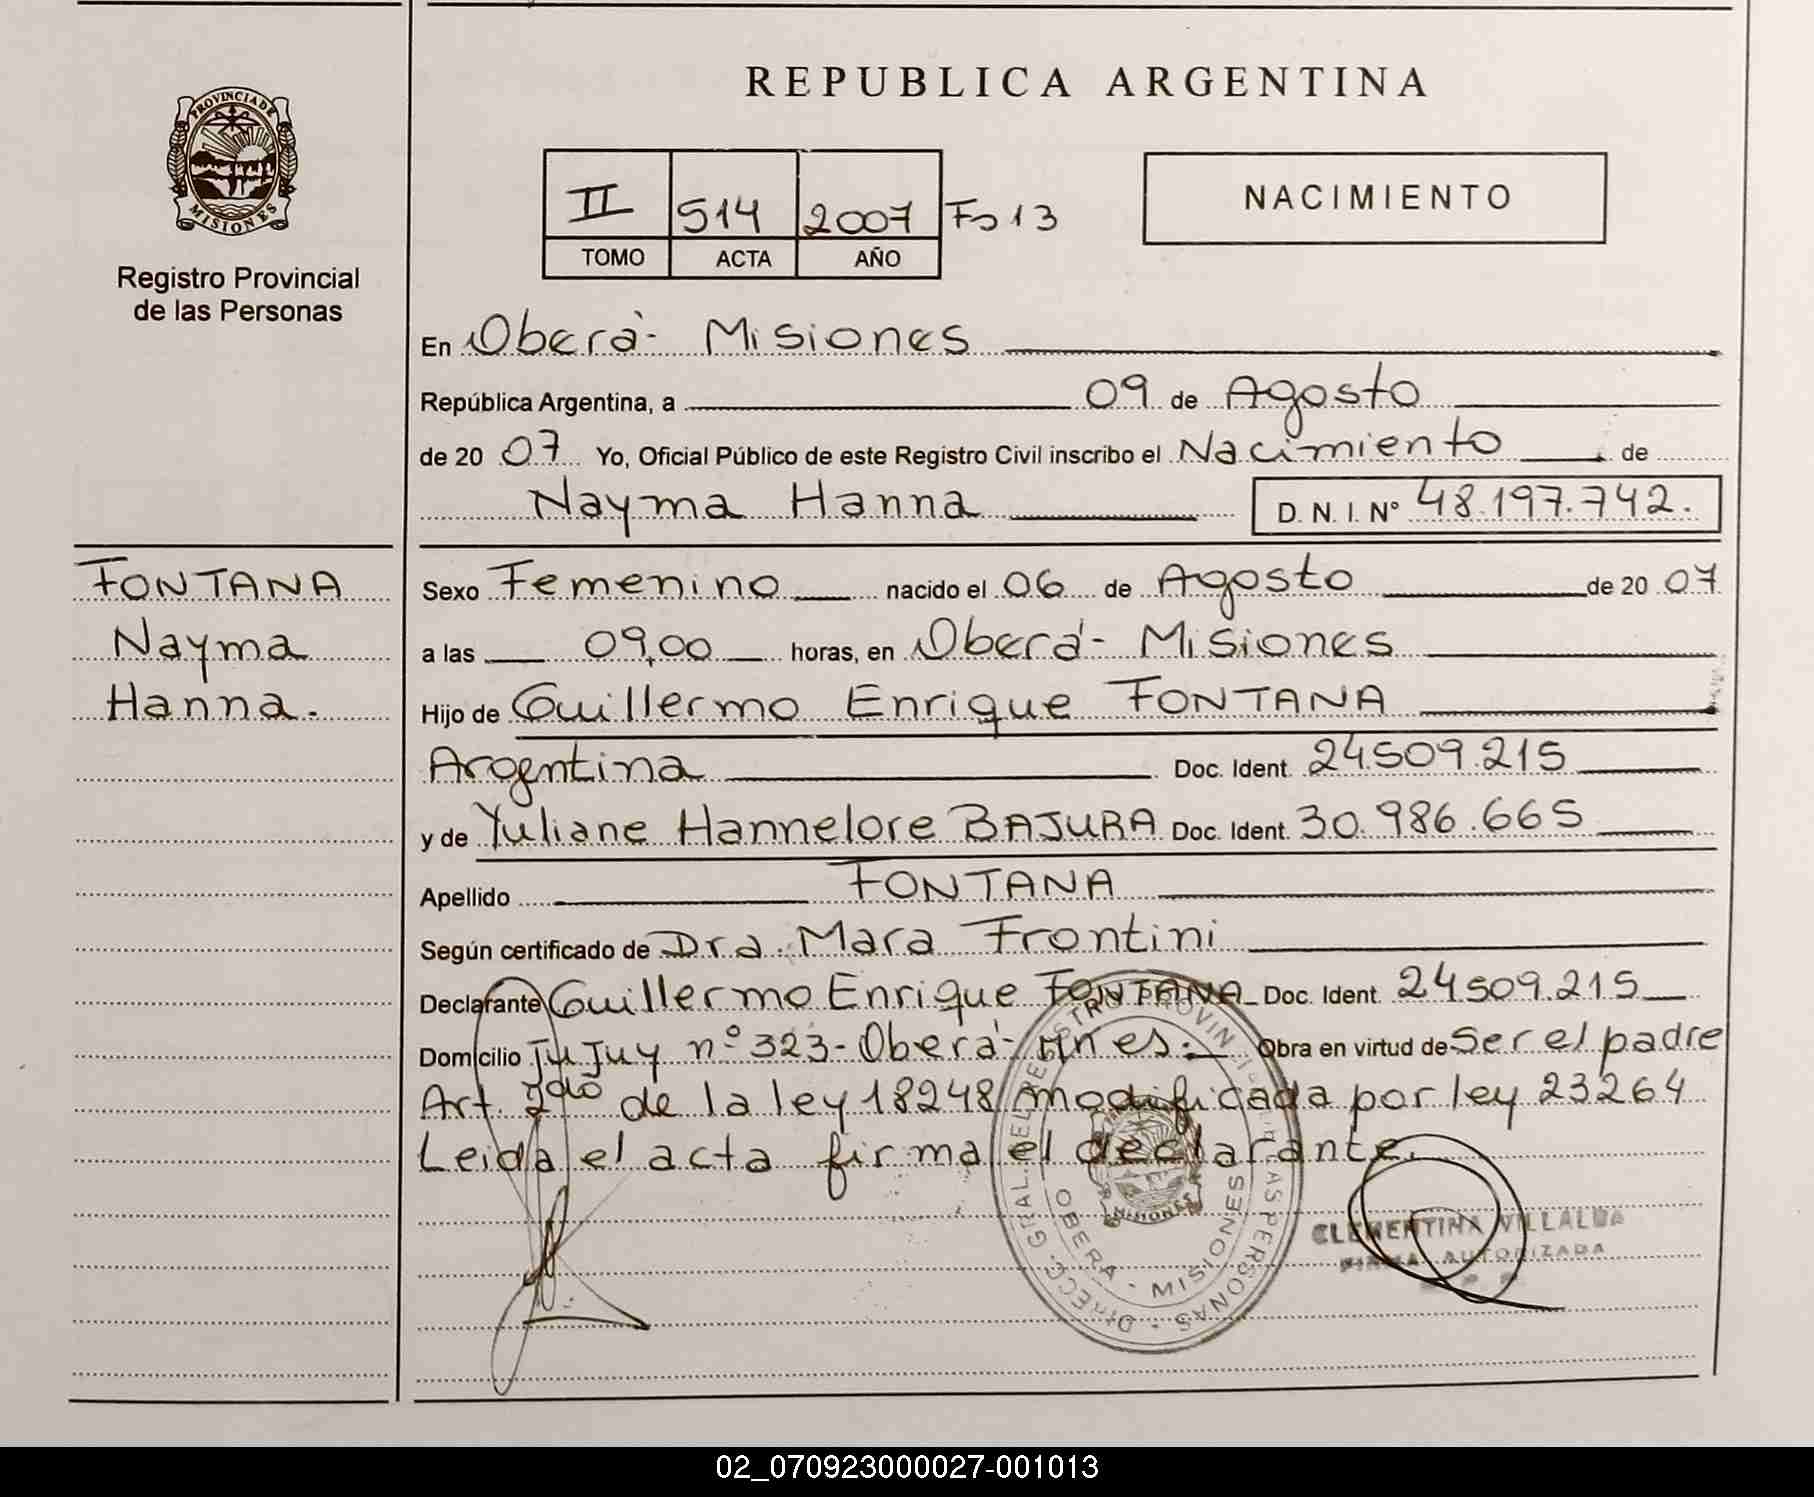 REPUBLICA ARGENTINA
PROVINCIA DE
MISIONES
Registro Provincial
de las Personas
II 514 2007 Fo 13
TOMO ACTA AÑO
NACIMIENTO
En Oberá- Misiones
República Argentina, a 09 de Agosto
de 20 07 Yo, Oficial Público de este Registro Civil inscribo el Nacimiento de
Nayma Hanna D. N. I. Nº 48.197.742.
FONTANA
Nayma
Hanna.
Sexo Femenino nacido el 06 de Agosto de 20 07
a las 09,00 horas, en Oberá- Misiones
Hijo de Guillermo Enrique FONTANA
Argentina Doc. Ident. 24.509.215
y de Yuliane Hannelore BAJURA Doc. Ident. 30.986.665
Apellido FONTANA
Según certificado de Dra. Mara Frontini
Declarante Guillermo Enrique FONTANA Doc. Ident. 24509.215
Domicilio Jujuy nº 323- Oberá- Mnes. Obra en virtud de Ser el padre
Art. 2do de la ley 18248 modificada por ley 23264
Leida el acta firma el declarante.
DIRECC. GRAL. DEL REGISTRO PROVINCIAL DE LAS PERSONAS
OBERA - MISIONES
MISIONES
CLEMENTINA VILLALBA
FIRMA AUTORIZADA
02_070923000027-001013